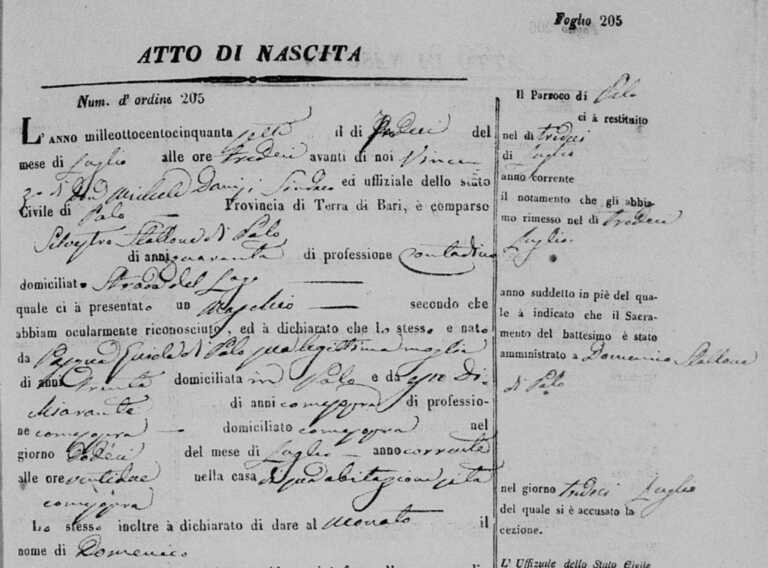 Foglio 205
ATTO DI NASCITA
Num. d'ordine 205
L'ANNO milleottocentocinquanta sette il di tredeci del
mese di Luglio alle ore tredeci avanti di noi Vincen
zo di Don Michele Sindaco ed uffiziale dello stato
Civile di Palo Provincia di Terra di Bari, è comparso
Silvestro Stallone di Palo
di anni quaranta di professione contadino
domiciliato Strada del Lago
quale ci à presentato un Maschio secondo che
abbiam ocularmente riconosciuto, ed à dichiarato che lo stesso è nato
da Pasqua di Palo sua legittima moglie
di anni trenta domiciliata in Palo e da esso Di-
chiarante di anni comesopra di professio-
ne comesopra domiciliato comesopra nel
giorno dodeci del mese di Luglio anno corrente
alle ore ventidue nella casa di sua abitazione sita
comesopra
Lo stesso inoltre à dichiarato di dare al neonato il
nome di Domenico
Il Parroco di Palo
ci à restituito
nel di tredeci
di Luglio
anno corrente
il notamento che gli abbia-
mo rimesso nel di tredeci
Luglio
anno suddetto in piè del qua-
le à indicato che il Sacra-
mento del battesimo è stato
amministrato a Domenico Stallone
di Palo
nel giorno tredeci Luglio
del quale si è accusato la
cezione.
L'Uffiziale dello Stato Civile